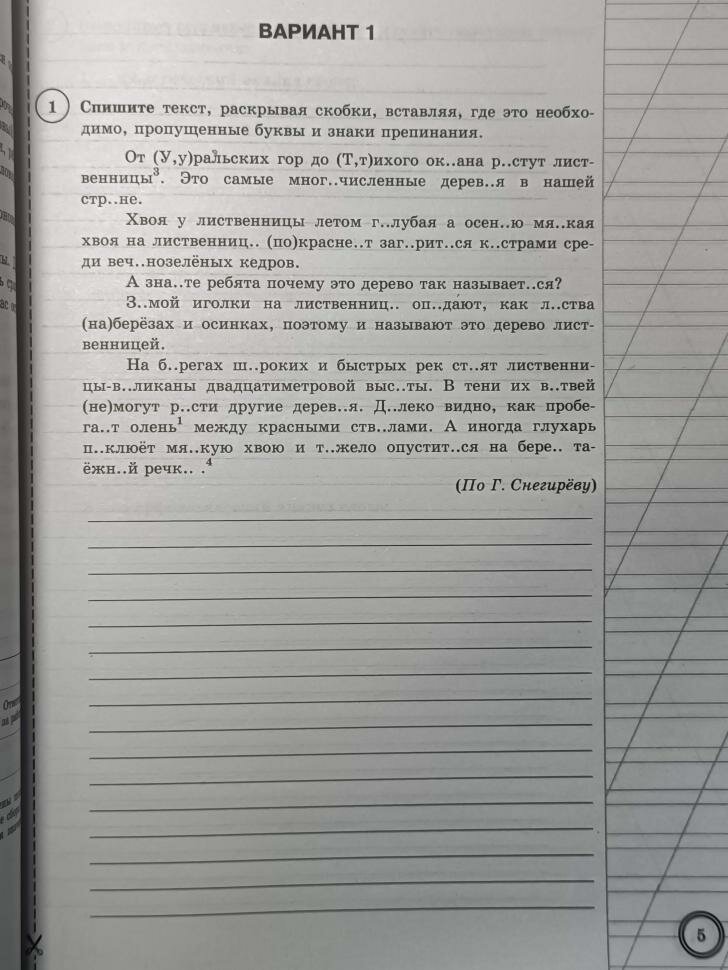 ВАРИАНТ 1
1 Спишите текст, раскрывая скобки, вставляя, где это необхо-
димо, пропущенные буквы и знаки препинания.
От (У,у)ральских гор до (Т,т)ихого ок..ана р..стут лист-
венницы³. Это самые мног..численные дерев..я в нашей
стр..не.
Хвоя у лиственницы летом г..лубая а осен..ю мя..кая
хвоя на лиственниц.. (по)красне..т заг..рит..ся к..страми сре-
ди веч..нозелёных кедров.
А зна..те ребята почему это дерево так называет..ся?
З..мой иголки на лиственниц.. оп..да́ют, как л..ства
(на)берёзах и осинках, поэтому и называют это дерево лист-
венницей.
На б..регах ш..роких и быстрых рек ст..ят лиственни-
цы-в..ликаны двадцатиметровой выс..ты. В тени их в..твей
(не)могут р..сти другие дерев..я. Д..леко видно, как пробе-
га..т олень¹ между красными ств..лами. А иногда глухарь
п..клюёт мя..кую хвою и т..жело опустит..ся на бере.. та-
ёжн..й речк.. .⁴
(По Г. Снегирёву)
5